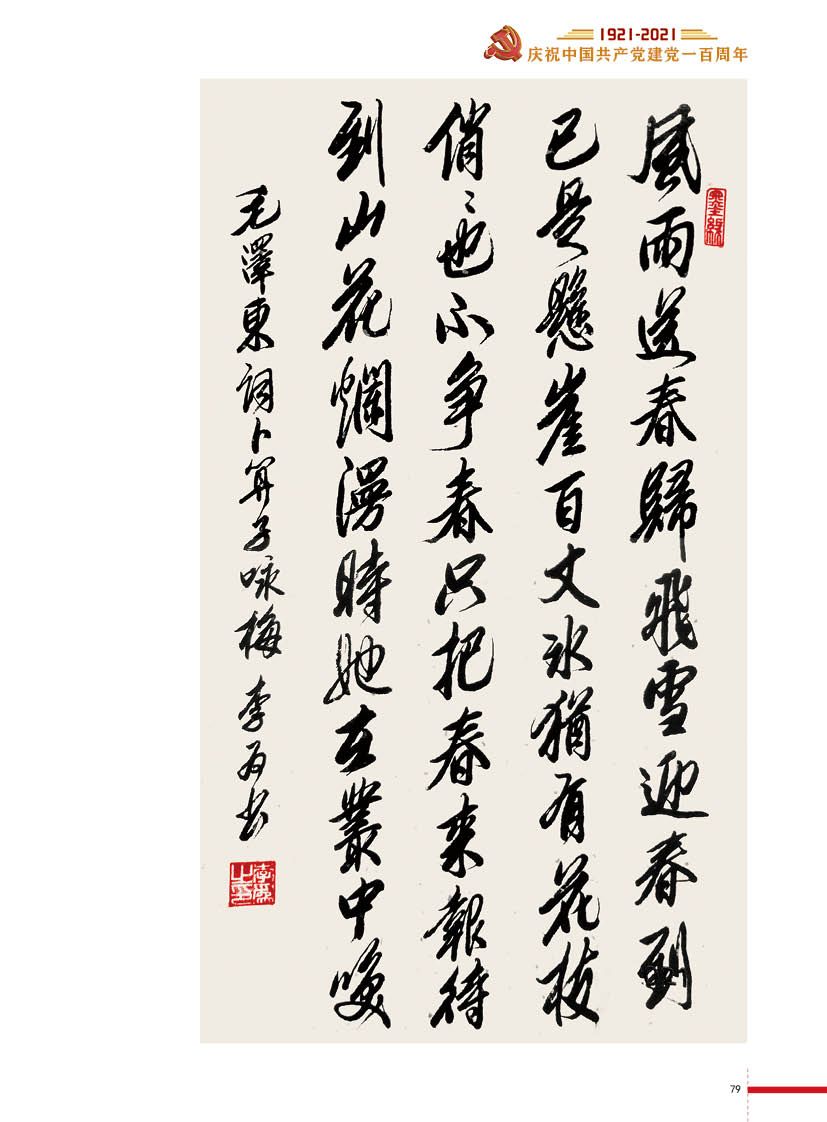 1921-2021
庆祝中国共产党建党一百周年
風雨送春歸飛雪迎春到
已是懸崖百丈冰猶有花枝
俏〻也不争春只把春来報待
到山花爛漫時她在叢中咲
毛澤東詞卜算子咏梅 李为书
李為之印
79